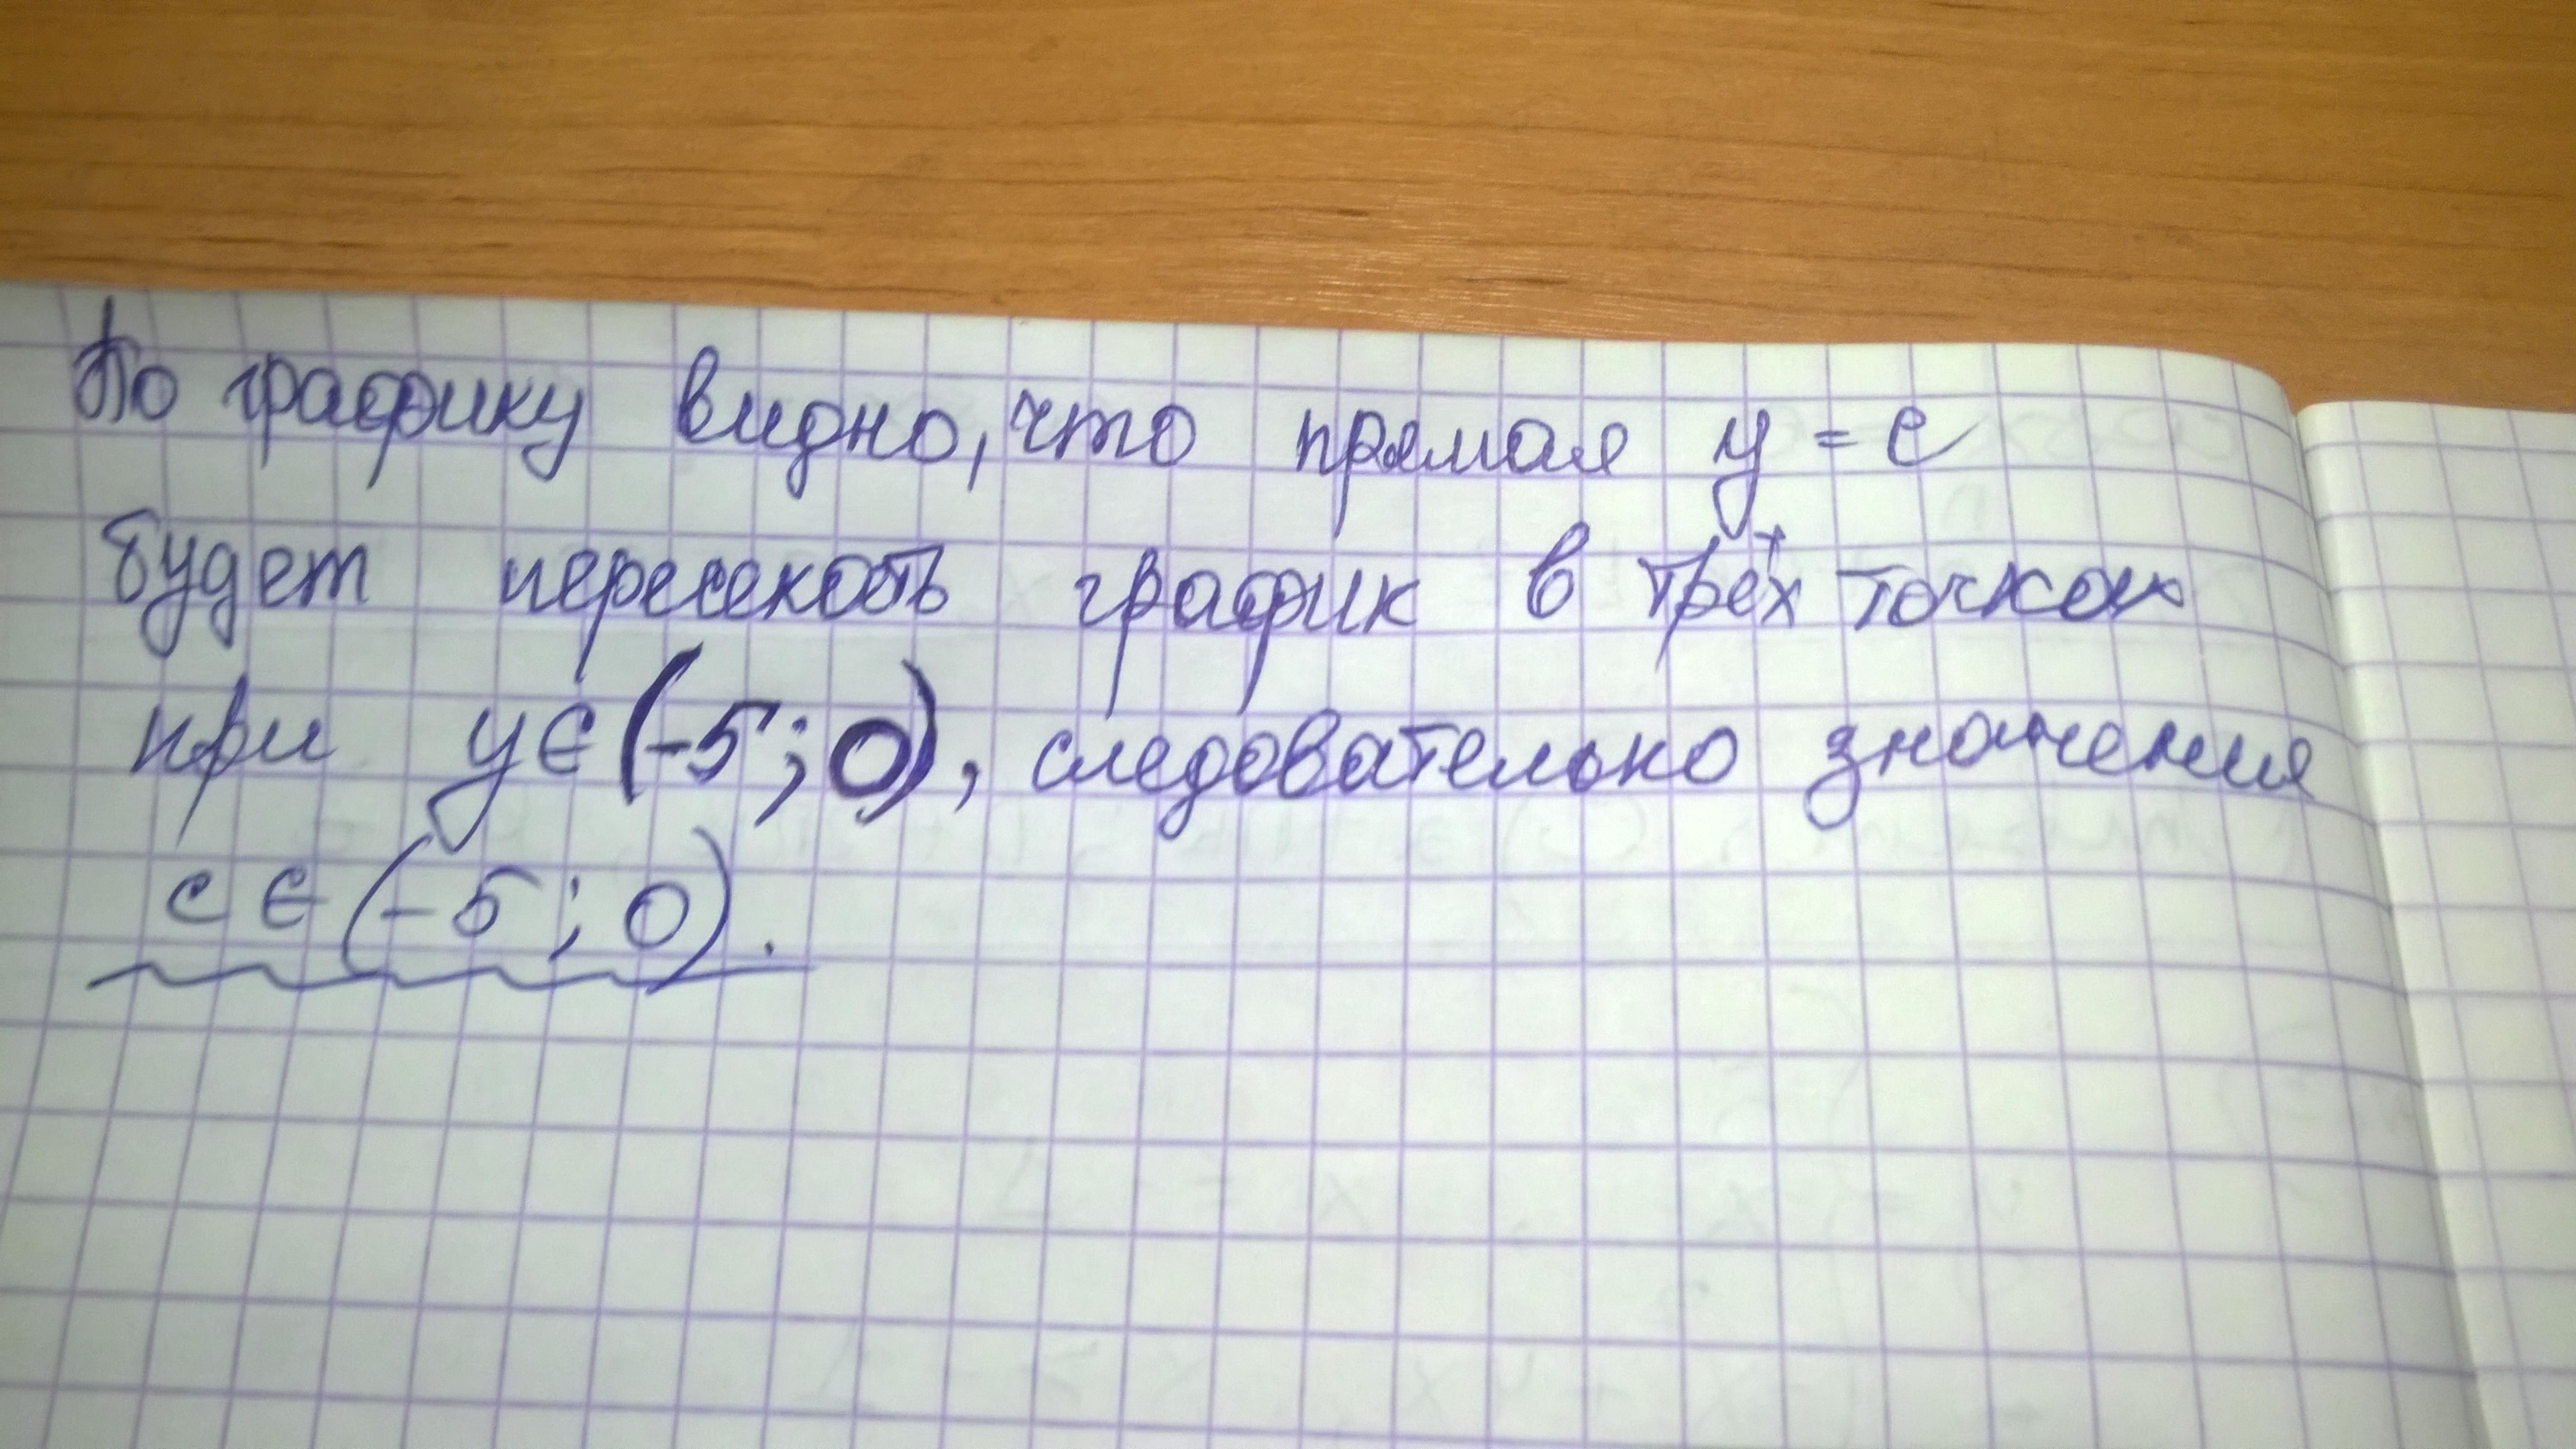 По графику видно, что прямая y = c
будет пересекать график в трёх точках
при y ∈ (-5; 0), следовательно значения
c ∈ (-5; 0).